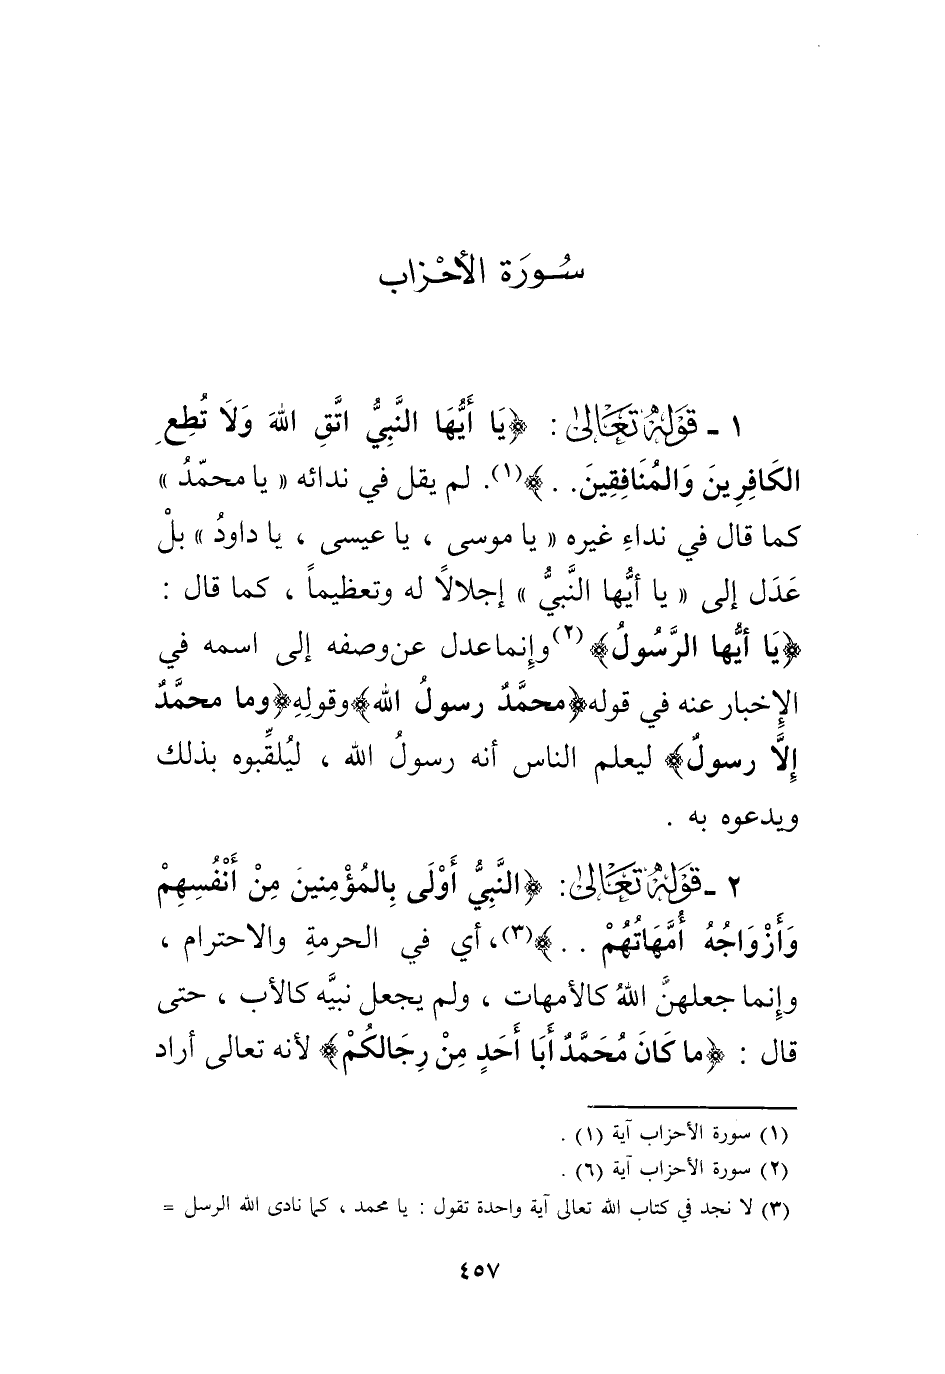 سُورَة الأَحْزَاب
١ - قَوْلُهُ تَعَالَىٰ : ﴿يَا أَيُّهَا النَّبِيُّ اتَّقِ اللهَ وَلَا تُطِعِ
الكَافِرِينَ وَالمُنَافِقِينَ. . ﴾(١). لم يقل في ندائه « يا محمّدُ »
كما قال في نداءِ غيره « يا موسى ، يا عيسى ، يا داودُ » بلْ
عَدَل إلى « يا أيُّها النَّبيُّ » إجلالًا له وتعظيماً ، كما قال :
﴿يَا أيُّها الرَّسُولُ﴾(٢) وإنما عدل عن وصفه إلى اسمه في
الإخبار عنه في قوله ﴿محمَّدٌ رسولُ الله﴾ وقولِهِ ﴿وما محمَّدٌ
إلَّا رسولٌ﴾ ليعلم الناس أنه رسولُ الله ، ليُلقِّبوه بذلك
ويدعوه به .
٢ - قَوْلُهُ تَعَالَىٰ : ﴿النَّبِيُّ أَوْلَى بِالمُؤْمِنينَ مِنْ أَنْفُسِهِمْ
وَأَزْوَاجُهُ أُمَّهَاتُهُمْ . . ﴾(٣)، أي في الحرمةِ والاحترام ،
وإنما جعلهنَّ اللهُ كالأمهات ، ولم يجعل نبيَّه كالأب ، حتى
قال : ﴿ما كَانَ مُحَمَّدٌ أَبَا أَحَدٍ مِنْ رِجَالكُمْ﴾ لأنه تعالى أراد
(١) سورة الأحزاب آية (١) .
(٢) سورة الأحزاب آية (٦) .
(٣) لا نجد في كتاب الله تعالى آية واحدة تقول : يا محمد ، كما نادى الله الرسل =
٤٥٧